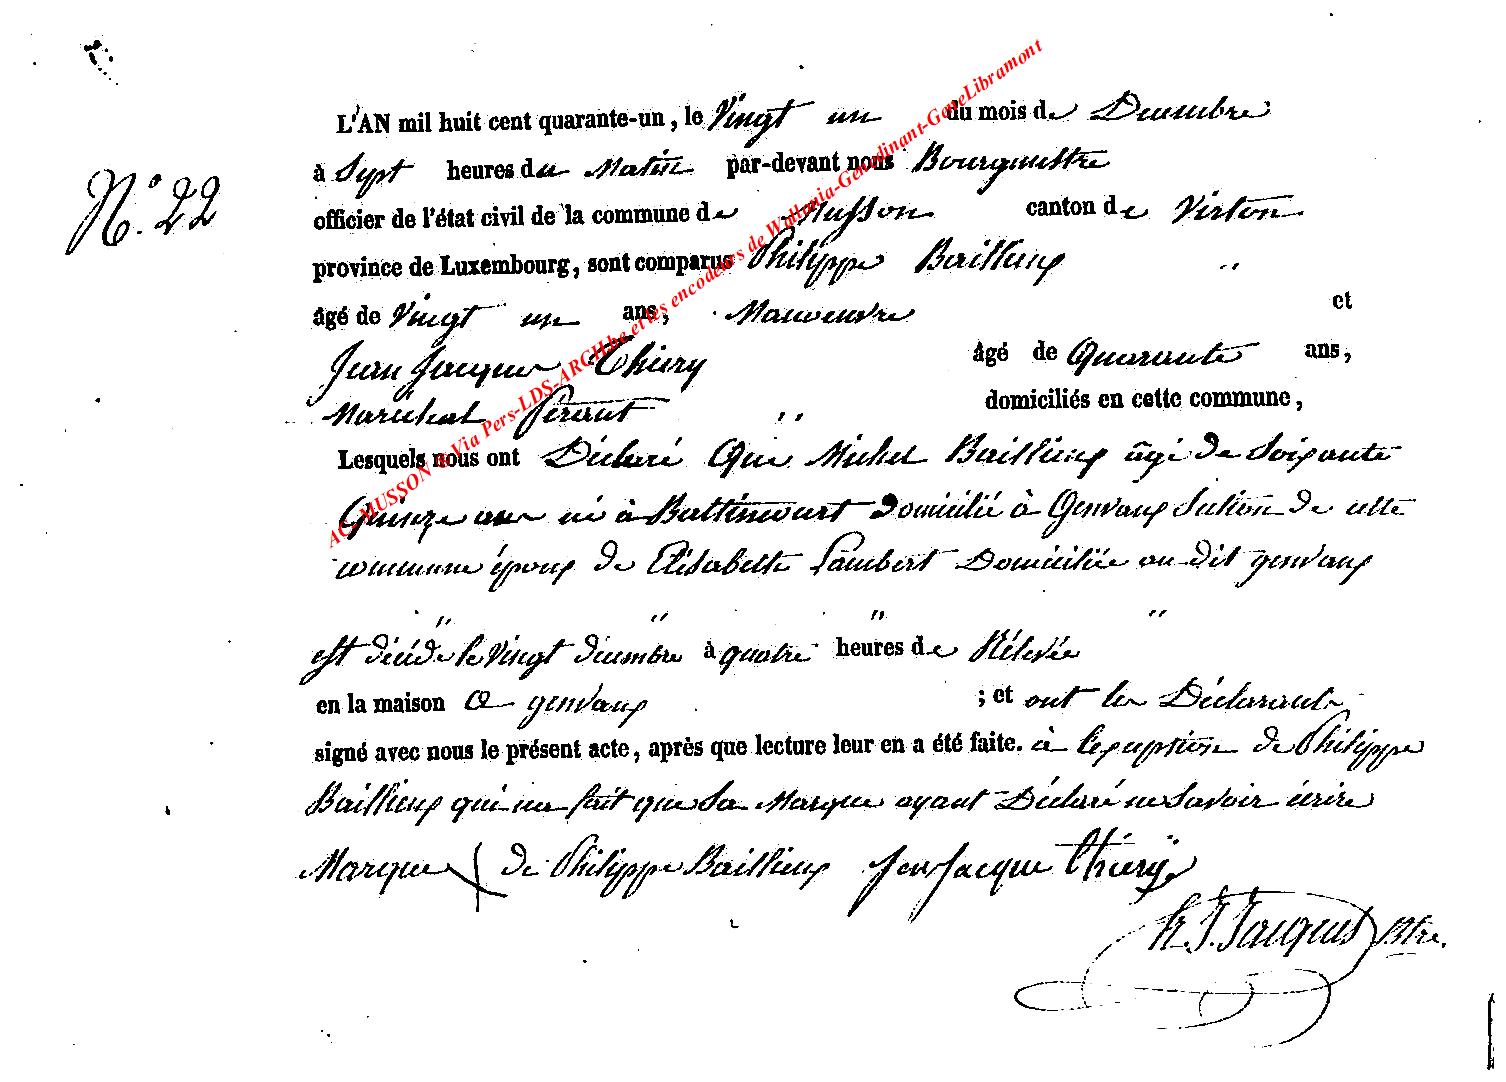 L'AN mil huit cent quarante-un, le Vingt un du mois de Décembre
à Sept heures du Matin par-devant nous Bourgmestre
N.° 22
officier de l'état civil de la commune de Musson canton de Virton
province de Luxembourg, sont comparus Philippe Baillieux "
âgé de Vingt un ans, Manœuvre et
Jean Jacques Thiery âgé de Quarante ans,
Maréchal ferant " domiciliés en cette commune,
Lesquels nous ont Déclaré Que Michel Baillieux âgé de Soixante
Quinze ans né à Battincourt Domicilié à Genvaux Section de cette
commune époux de Elisabette Lambert Domiciliée au dit genvaux
" " " "
est décédé le Vingt décembre à quatre heures de Rélevée
en la maison a genvaux ; et ont les Déclarants
signé avec nous le présent acte, après que lecture leur en a été faite. à lexception de Philippe
Baillieux qui ne fait que Sa Marque ayant Déclaré ne Savoir écrire
Marque de Philippe Baillieux Jen Jacque thiery
J. Jacques Btre.
AC MUSSON Via Pers-LDS-ARCH.be et les encodeurs de Wallonia-Genedinant-GeneLibramont